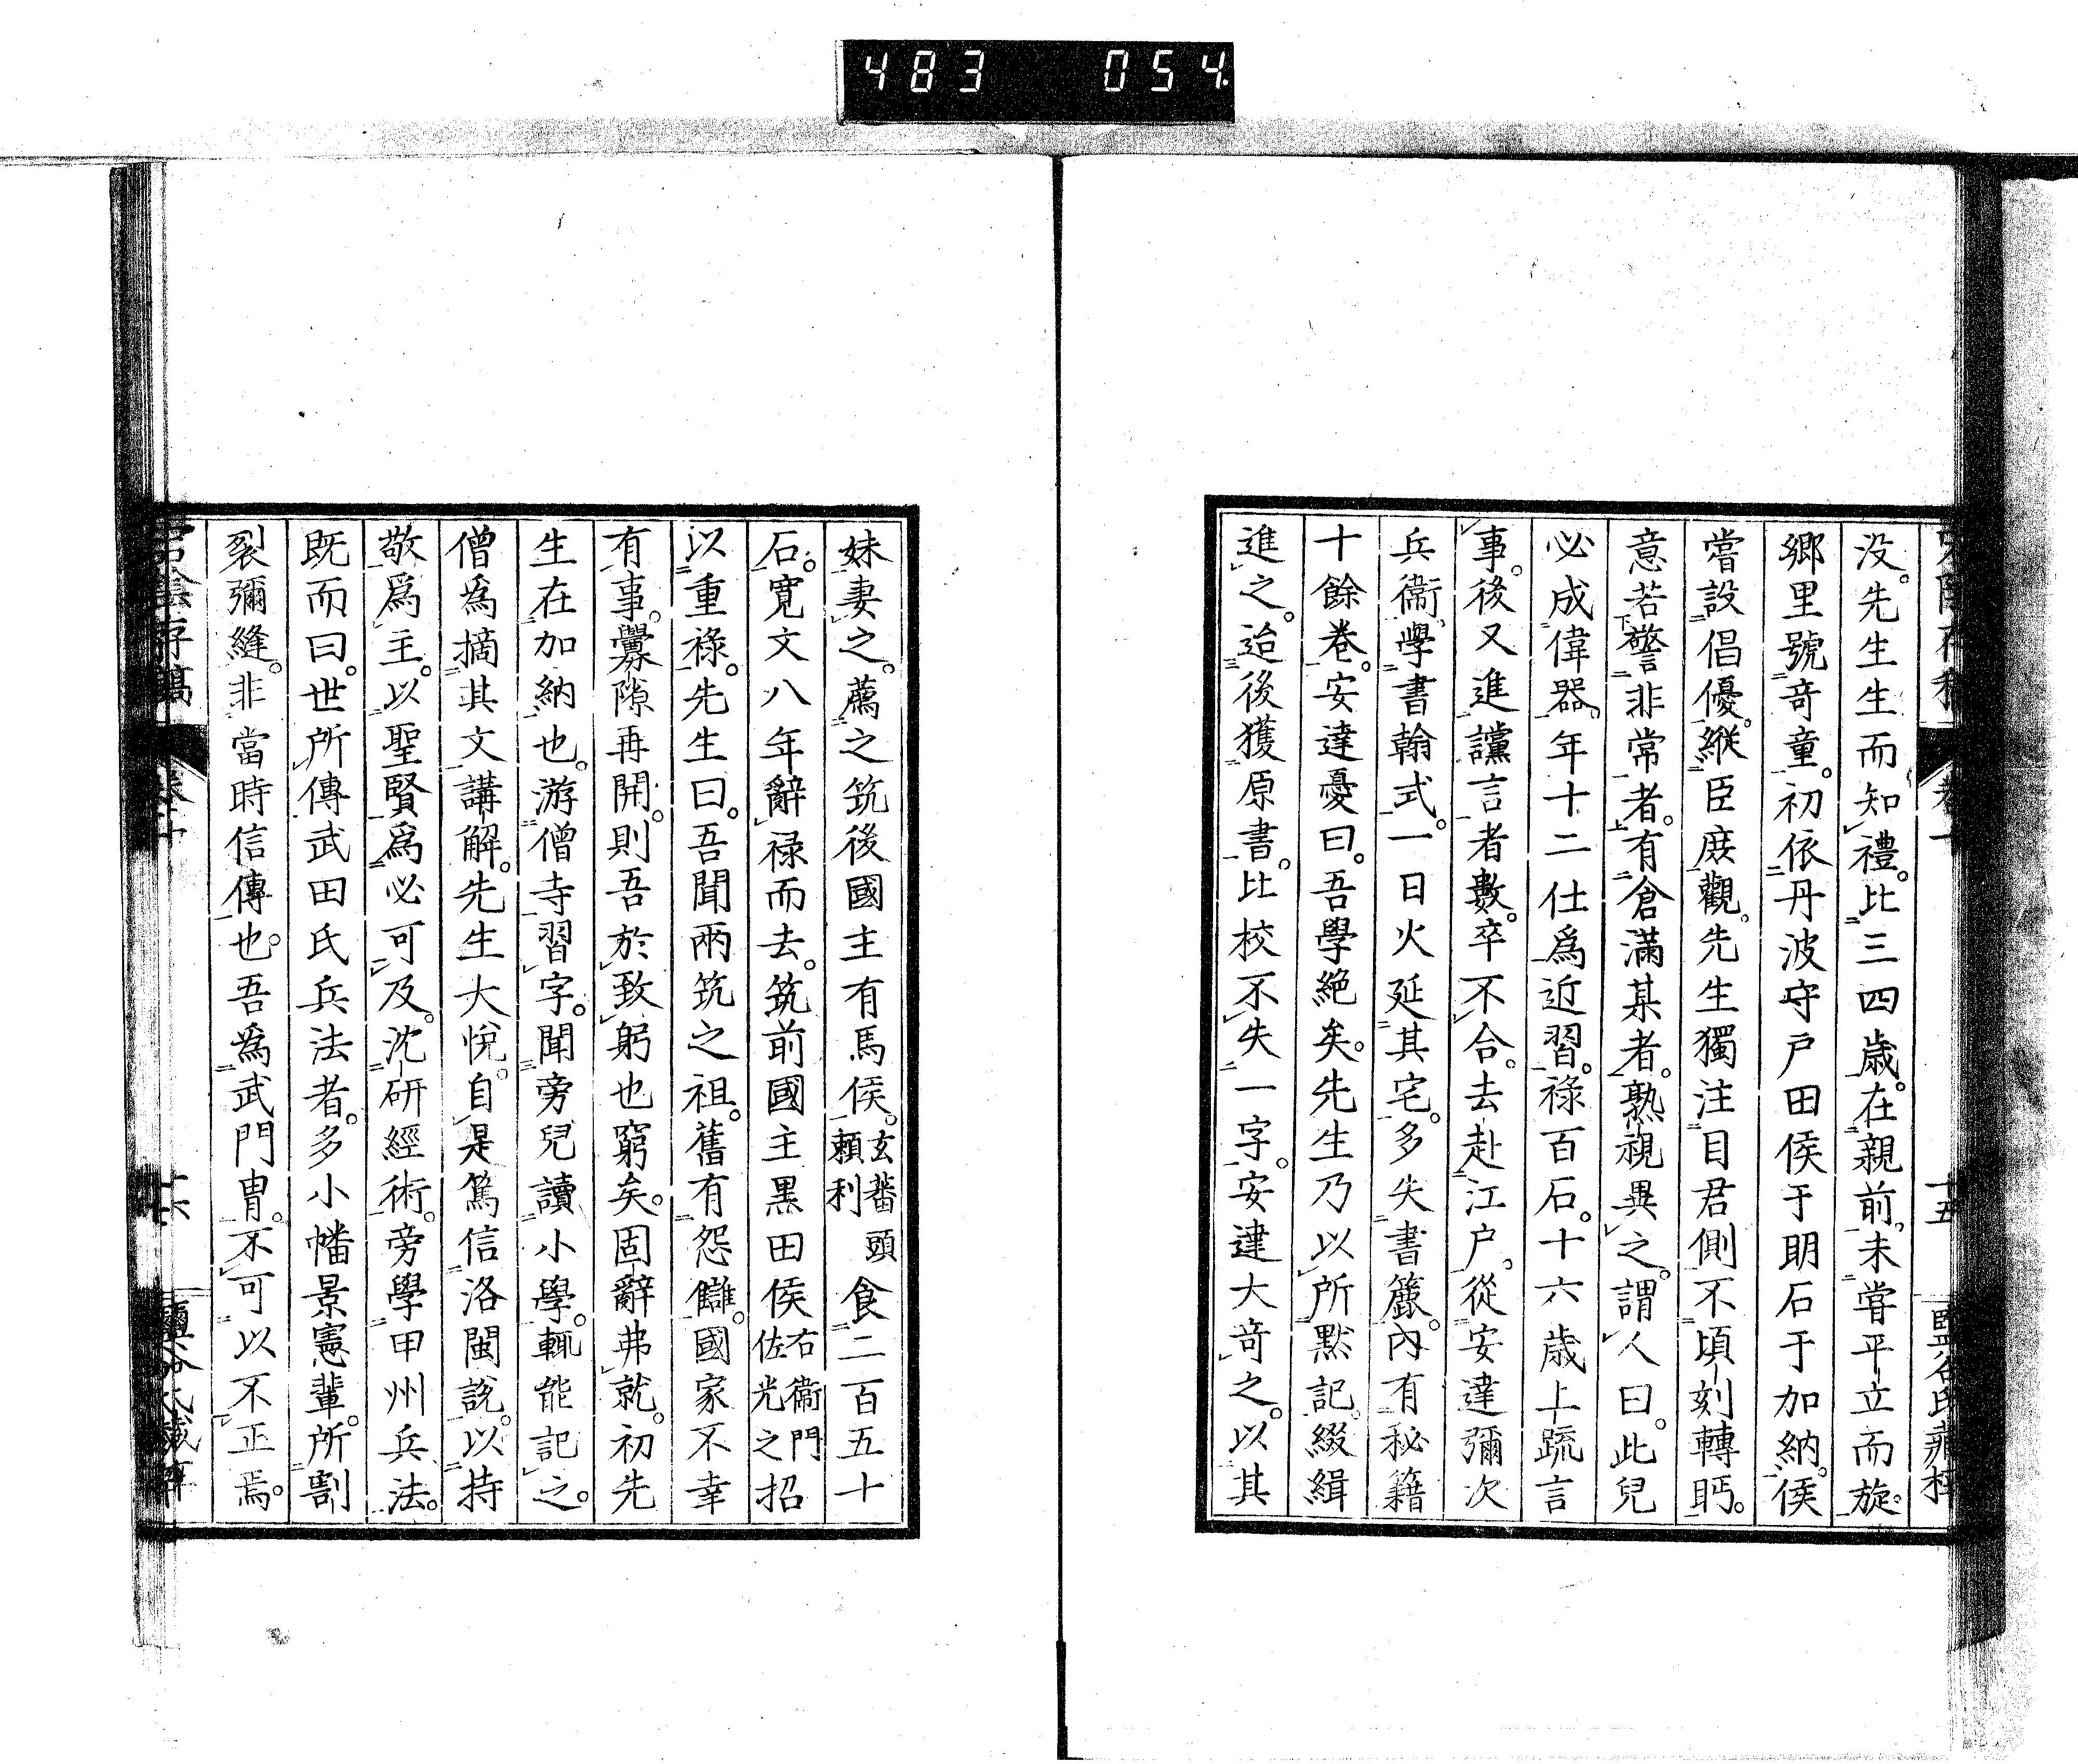 483 054
没。先生生而知禮。比三四歳。在親前。未嘗平立而旋。
郷里號竒童。初依丹波守戸田侯于明石于加納。侯
嘗設倡優。縱臣庶觀。先生獨注目君側不頃刻轉眄。
意若警非常者。有倉滿某者。熟視異之。謂人曰。此兒
必成偉器。年十二仕爲近習。禄百石。十六歳上疏言
事。後又進讜言者數。卒不合。去赴江戸。從安達彌次
兵衞。學書翰式。一日火延其宅。多失書簏。内有秘籍
十餘卷。安達憂曰。吾學絶矣。先生乃以所黙記。綴緝
進之。迨後獲原書。比校不失一字。安達大竒之。以其
十五
妹妻之。薦之筑後國主有馬侯。玄蕃頭頼利食二百五十
石。寛文八年辭禄而去。筑前國主黒田侯右衞門佐光之招
以重祿。先生曰。吾聞兩筑之祖。舊有怨讎。國家不幸
有事。釁隙再開。則吾於致躬也窮矣。固辭弗就。初先
生在加納也。游僧寺習字。聞旁兒讀小學。輒能記之。
僧爲摘其文講解。先生大悅。自是篤信洛閩説。以持
敬爲主。以聖賢爲必可及。沈研經術。旁學甲州兵法。
既而曰。世所傳武田氏兵法者。多小幡景憲輩。所割
裂彌縫。非當時信傳也。吾爲武門冑。不可以不正焉。
十六